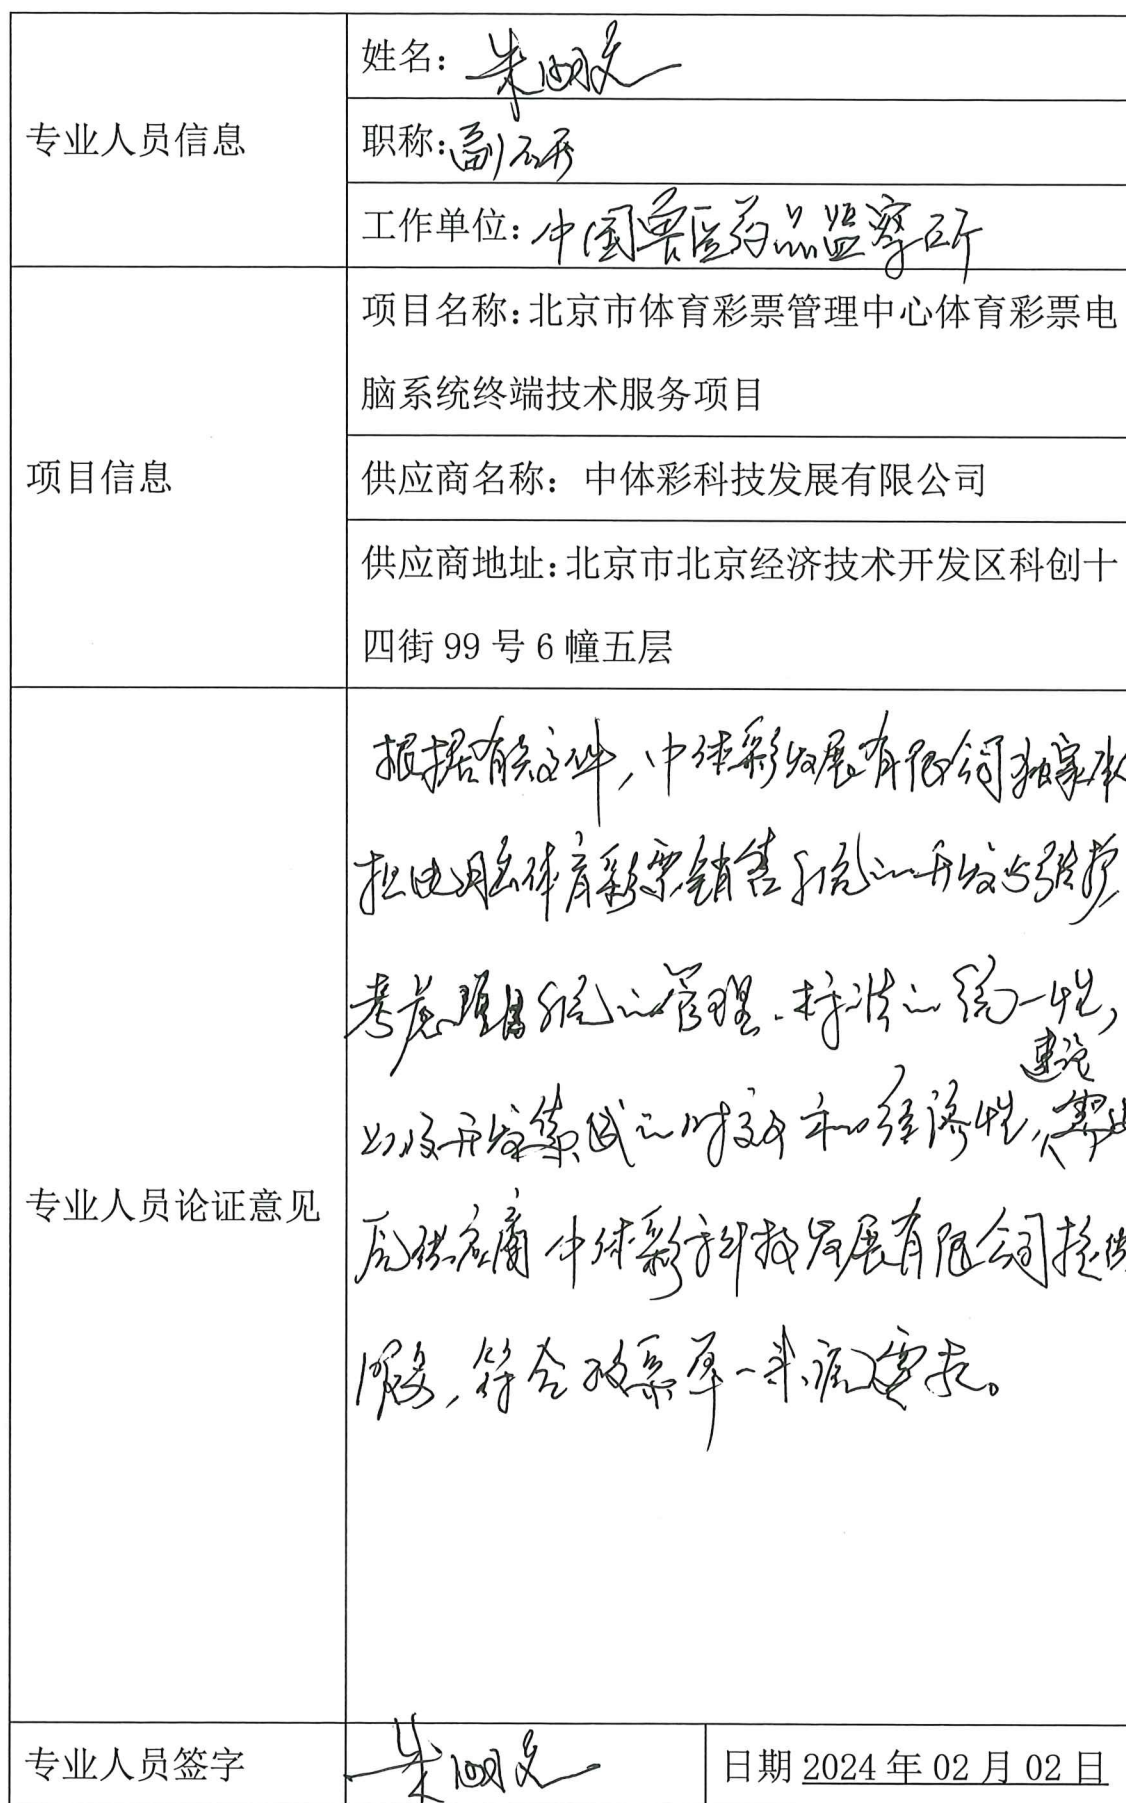 专业人员信息
姓名：朱明文
职称：副研
工作单位：中国兽医药品监察所
项目信息
项目名称：北京市体育彩票管理中心体育彩票电
脑系统终端技术服务项目
供应商名称：中体彩科技发展有限公司
供应商地址：北京市北京经济技术开发区科创十
四街 99 号 6 幢五层
专业人员论证意见
根据有关文件，中体彩发展有限公司独家承
担电脑体育彩票销售系统的开发与维护，
考虑项目系统的管理、标准的统一性，
以及开发集成的时效和经济性，建议
原供应商中体彩科技发展有限公司提供
服务，符合政采单一来源要求。
专业人员签字
朱明文
日期 2024 年 02 月 02 日